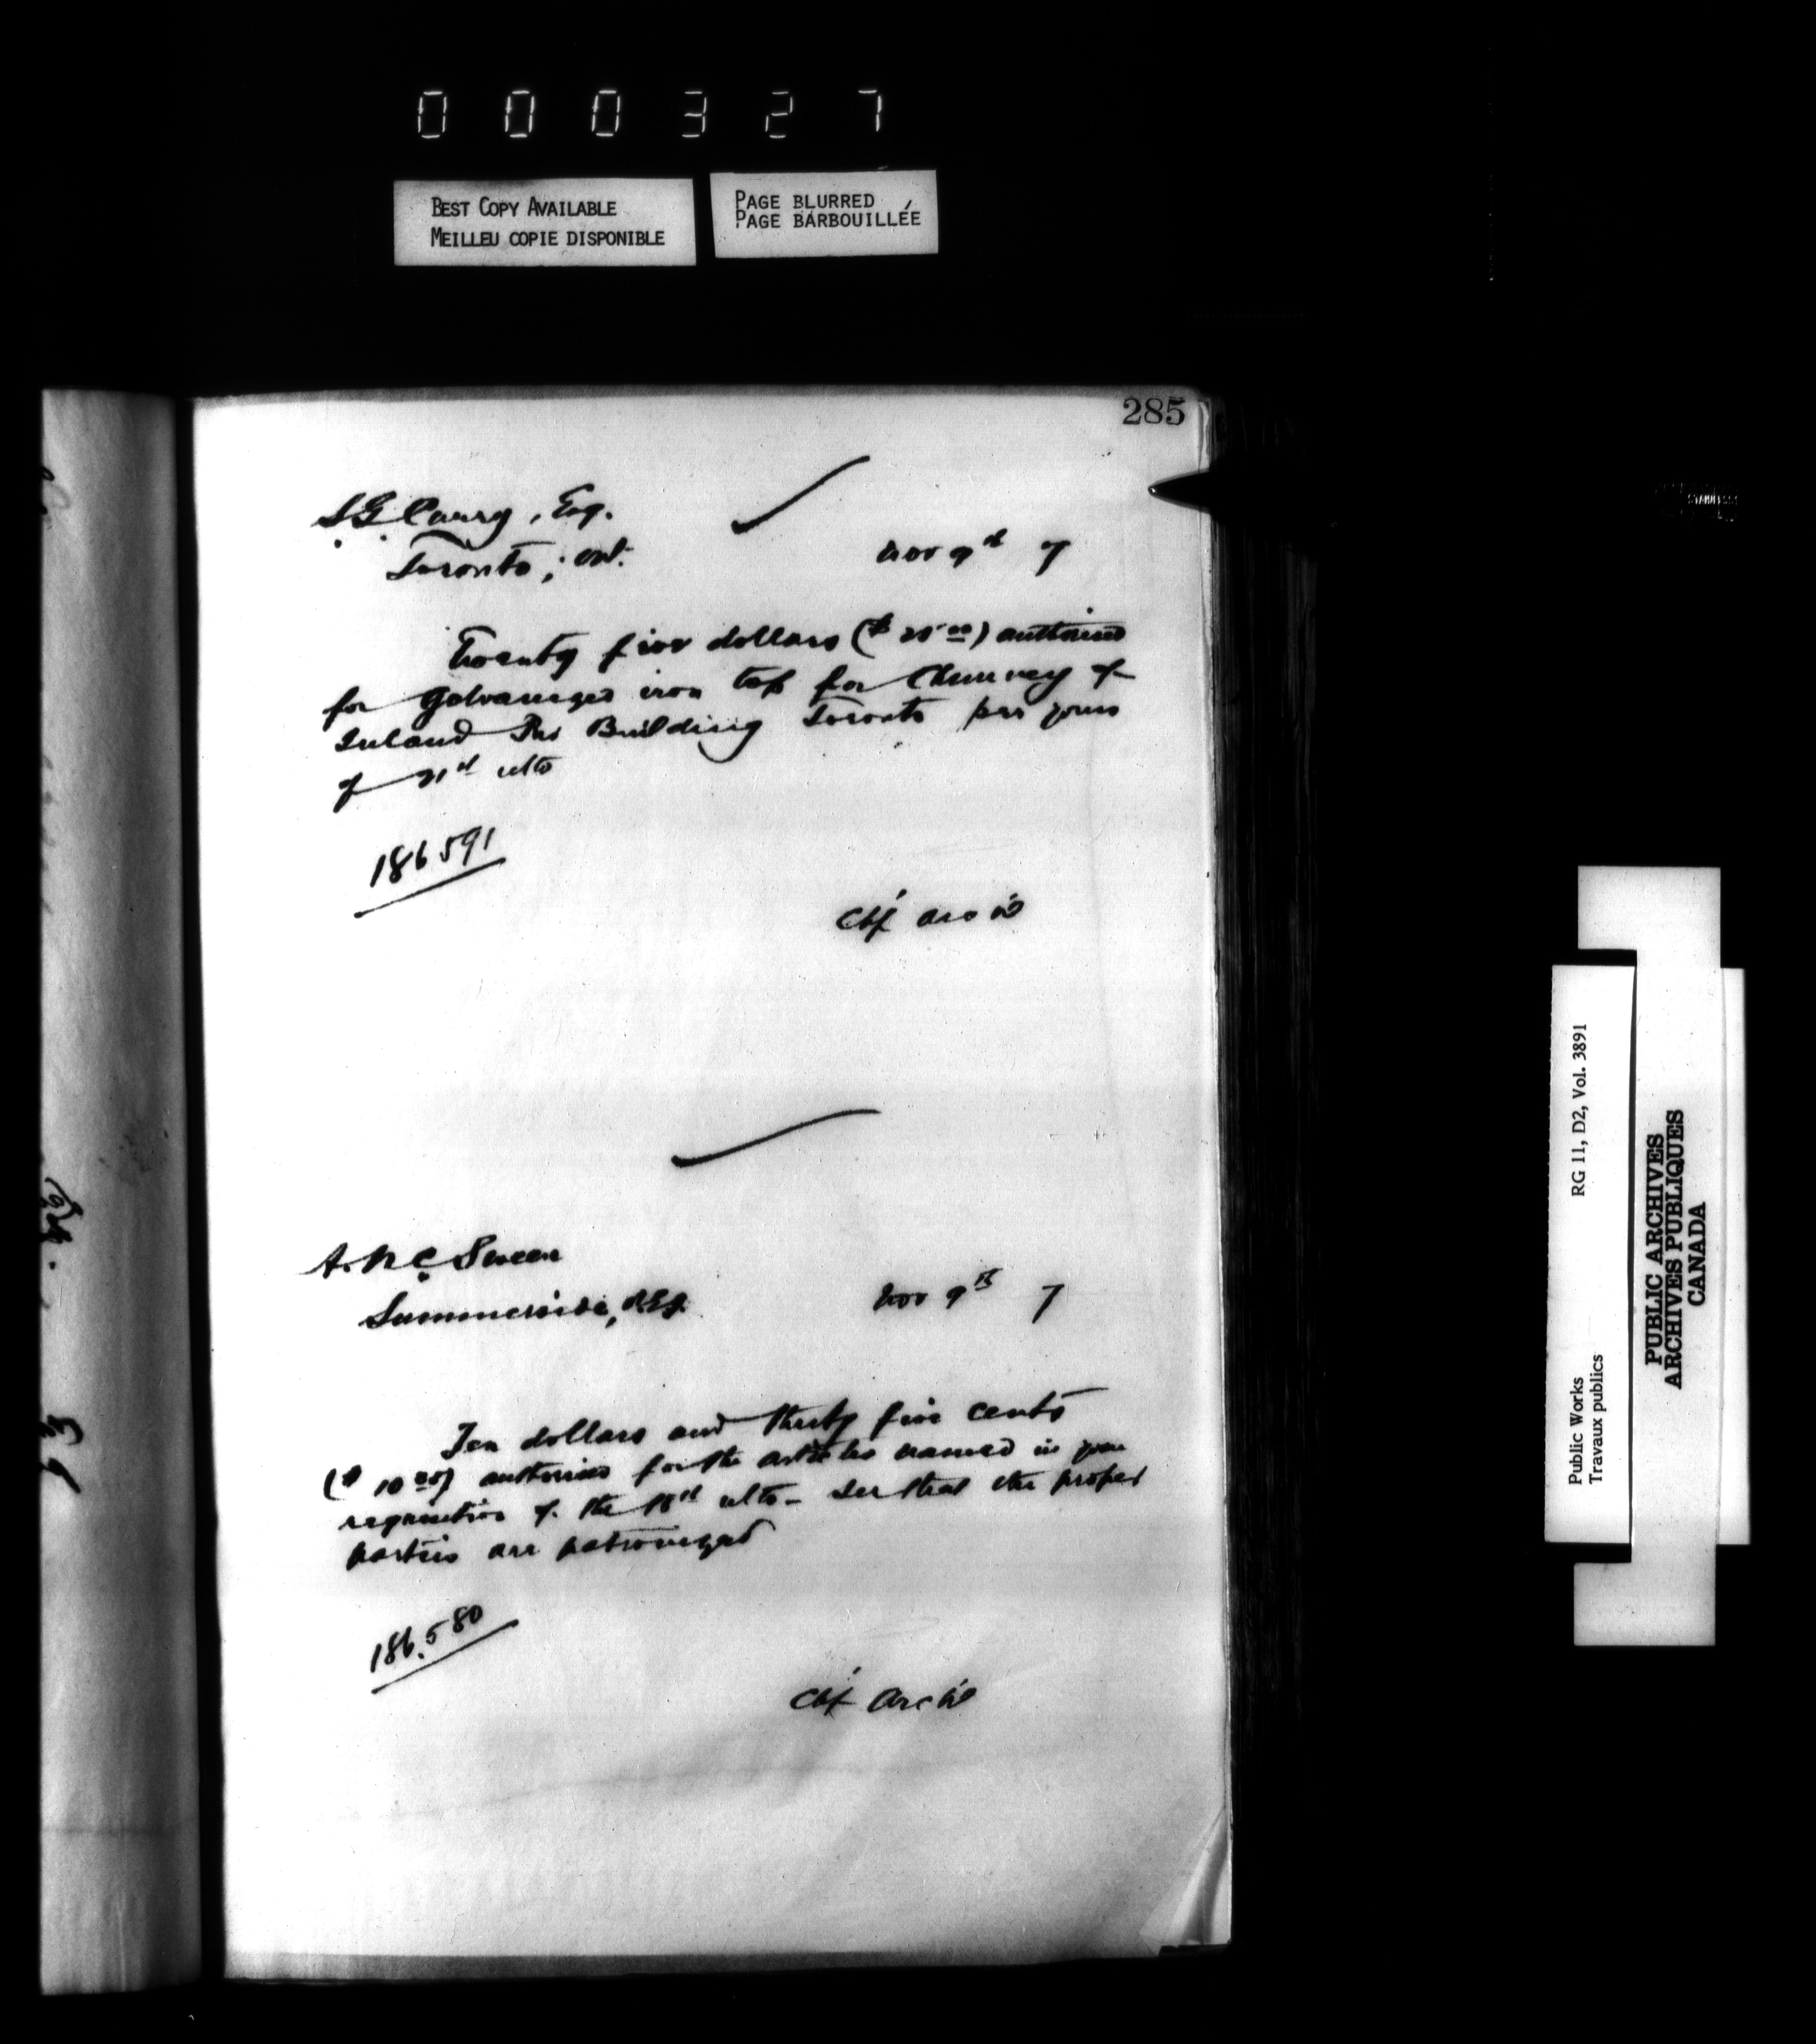 000327
BEST COPY AVAILABLE
MEILLEU COPIE DISPONIBLE
PAGE BLURRED
PAGE BARBOUILLÉE
285
S.G. Curry, Esq.
Toronto, Ont.
Nov 9th 7
Twenty five dollars ($25.00) authorized
for Galvanized iron top for Chimney of
Inland Rev Building Toronto per yours
of 31st ulto
186591
Chf Archt
A. McSween
Summerside, P.E.I.
Nov 9th 7
Ten dollars and thirty five cents
($10.35) authorized for the articles named in your
requisition of the 18th ulto - See that the proper
parties are patronized
186.580
Chf Archt
Public Works
Travaux publics
RG 11, D2, Vol. 3891
PUBLIC ARCHIVES
ARCHIVES PUBLIQUES
CANADA